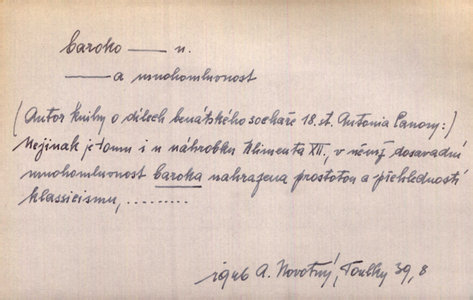 baroko — n.
— a mnohomluvnost
(Autor knihy o dílech benátského sochaře 18. st. Antonia Canovy:)
Nejinak je tomu i u náhrobku Klimenta XIII., v němž dosavadní
mnohomluvnost baroka nahrazena prostotou a přehledností
klassicismu, ..........
1946 A. Novotný, Toulky 39, 8